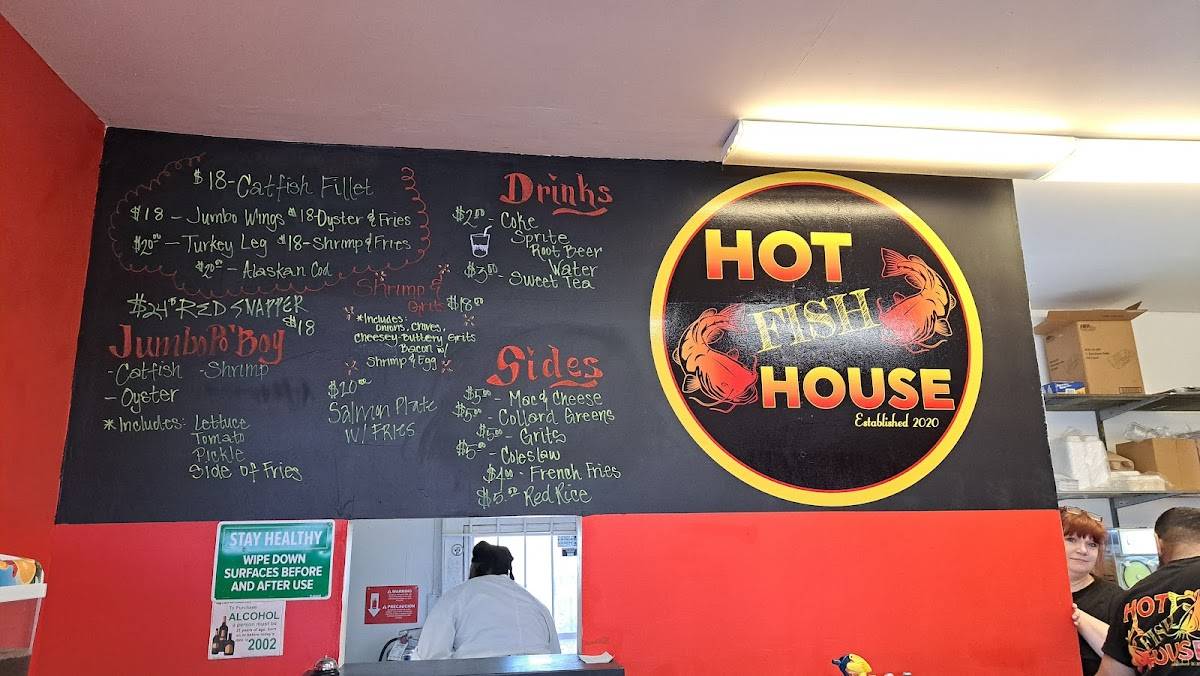 $18-Catfish Fillet
$18 - Jumbo Wings $18-Oyster & Fries
$20.00 - Turkey Leg $18-Shrimp & Fries
$20.00 - Alaskan Cod
$24.00 RED SNAPPER
Jumbo Po'Boy $18
-Catfish -Shrimp
- Oyster
*Includes: Lettuce
Tomato
Pickle
Side of Fries
Shrimp &
Grits $18.00
*Includes:
Onions, Chives,
Cheesey-Buttery Grits
Bacon w/
Shrimp & Egg
$20.00
Salmon Plate
W/ FRIES
Drinks
$2.00 - Coke
Sprite
Root Beer
Water
$3.00 - Sweet Tea
Sides
$5.00 - Mac & Cheese
$5.00 - Collard Greens
$5.00 - Grits
$5.00 - Coleslaw
$4.00 - French Fries
$5.00 Red Rice
HOT
FISH
HOUSE
Established 2020
STAY HEALTHY
WIPE DOWN
SURFACES BEFORE
AND AFTER USE
To Purchase
ALCOHOL
a person must be
21 years of age, born
on or before today's
date in
2002
WARNING
PRECAUCIÓN
HOT
FISH
HOUSE